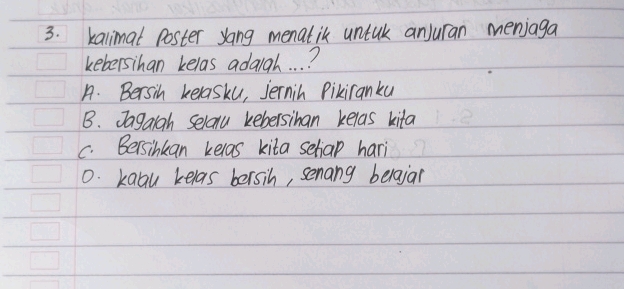 3. kalimat Poster yang menarik untuk anjuran menjaga
kebersihan kelas adalah ...?
A. Bersih kelasku, jernih Pikiranku
B. Jagalah selalu kebersihan kelas kita
C. Bersihkan kelas kita setiap hari
D. kalau kelas bersih, senang belajar